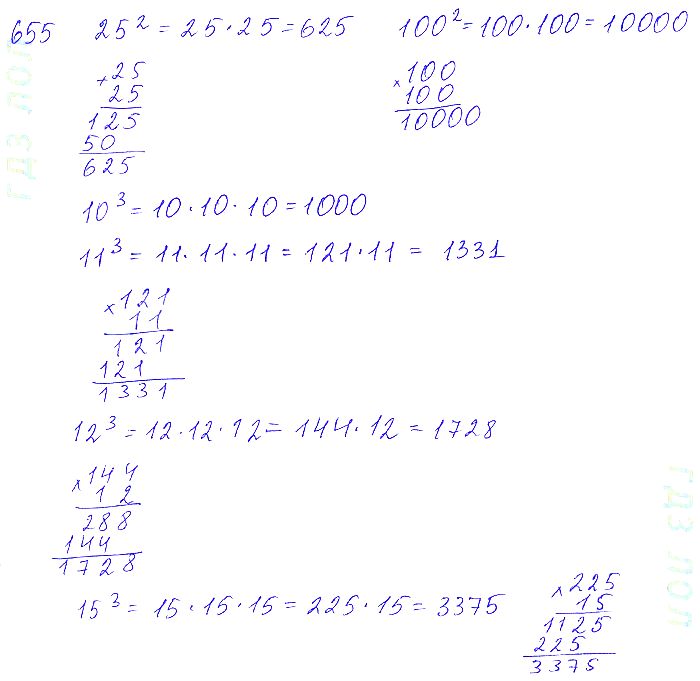 655 25² = 25·25 = 625 100² = 100·100 = 10000
+25 ×100
25 100
125 10000
50
625
10³ = 10·10·10 = 1000
11³ = 11·11·11 = 121·11 = 1331
×121
11
121
121
1331
12³ = 12·12·12 = 144·12 = 1728
×144
12
288
144
1728
15³ = 15·15·15 = 225·15 = 3375
×225
15
1125
225
3375
гдз лол
гдз лол